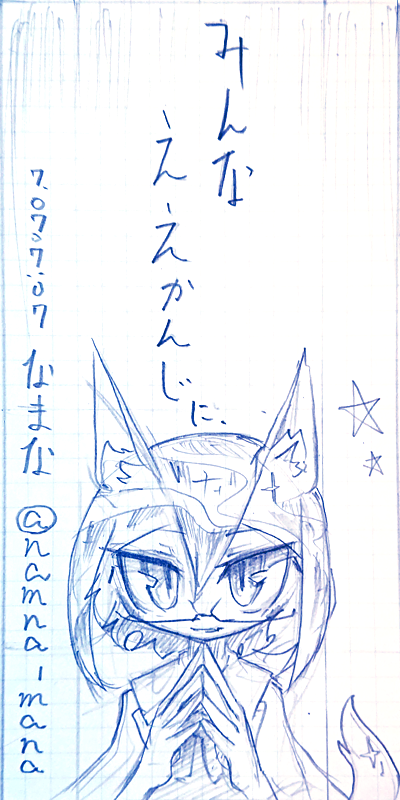 みんな
ええかんじに.
7.07.07:07 なまな @namna_mana